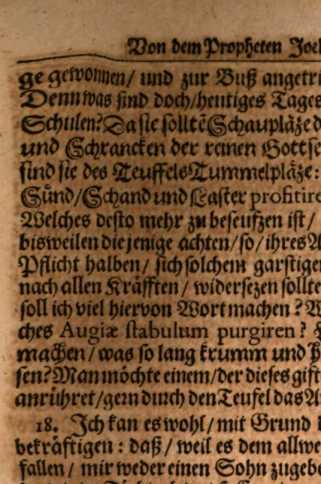 Von dem Propheten Joel
ge gewonnen/ und zur Buß angetri
Denn was sind doch/heutiges Tages
Schulen? Da sie solltẽ Schaupläze d
und Schrancken der reinen Gottse
sind sie des Teuffels Tummelpläze:
Sünd/Schand und Laster profitire
Welches desto mehr zu beseufzen ist/
bisweilen die jenige achten/so/ihres A
Pflicht halben/ sich solchem garstige
nach allen Kräfften/ widersezen sollte
soll ich viel hiervon Wort machen? W
ches Augiæ stabulum purgiren?
machen/was so lang krumm und h
sen? Man möchte einem/der dieses gift
anrühret/gern durch den Teufel das A
18. Ich kan es wohl/mit Grund
bekräftigen: daß/ weil es dem allwe
fallen/ mir weder einen Sohn zugebe